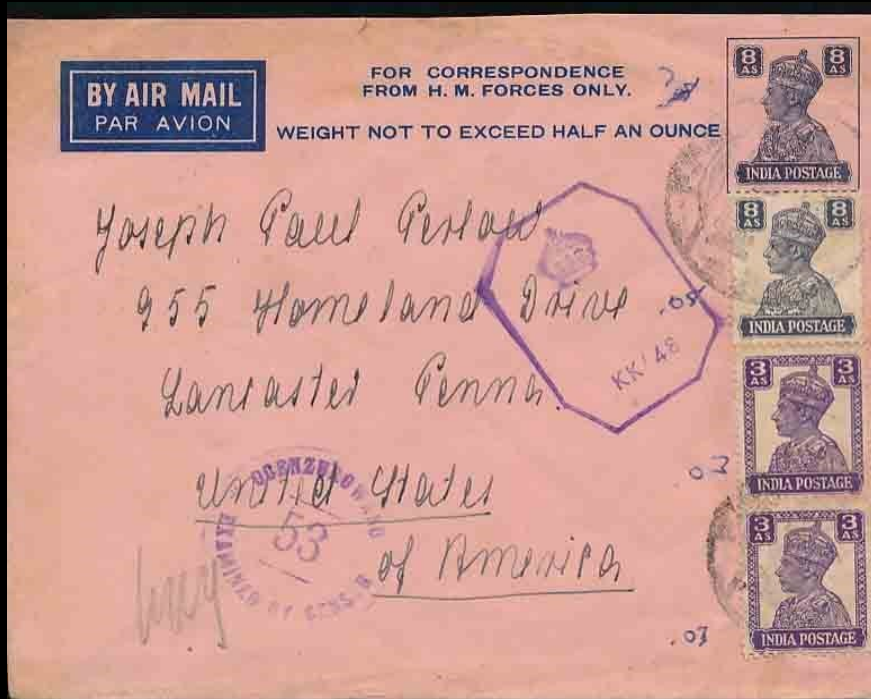 BY AIR MAIL
PAR AVION
FOR CORRESPONDENCE
FROM H. M. FORCES ONLY.
WEIGHT NOT TO EXCEED HALF AN OUNCE
8 AS 8 AS
INDIA POSTAGE
8 AS 8 AS
INDIA POSTAGE
3 AS 3 AS
INDIA POSTAGE
3 AS 3 AS
INDIA POSTAGE
Joseph Paul
955 Homeland Drive
.05
KK' 48
Lancaster Penna.
03
United States
of America
OCENZUROWANO
53
EXAMINED BY CENS.
.03